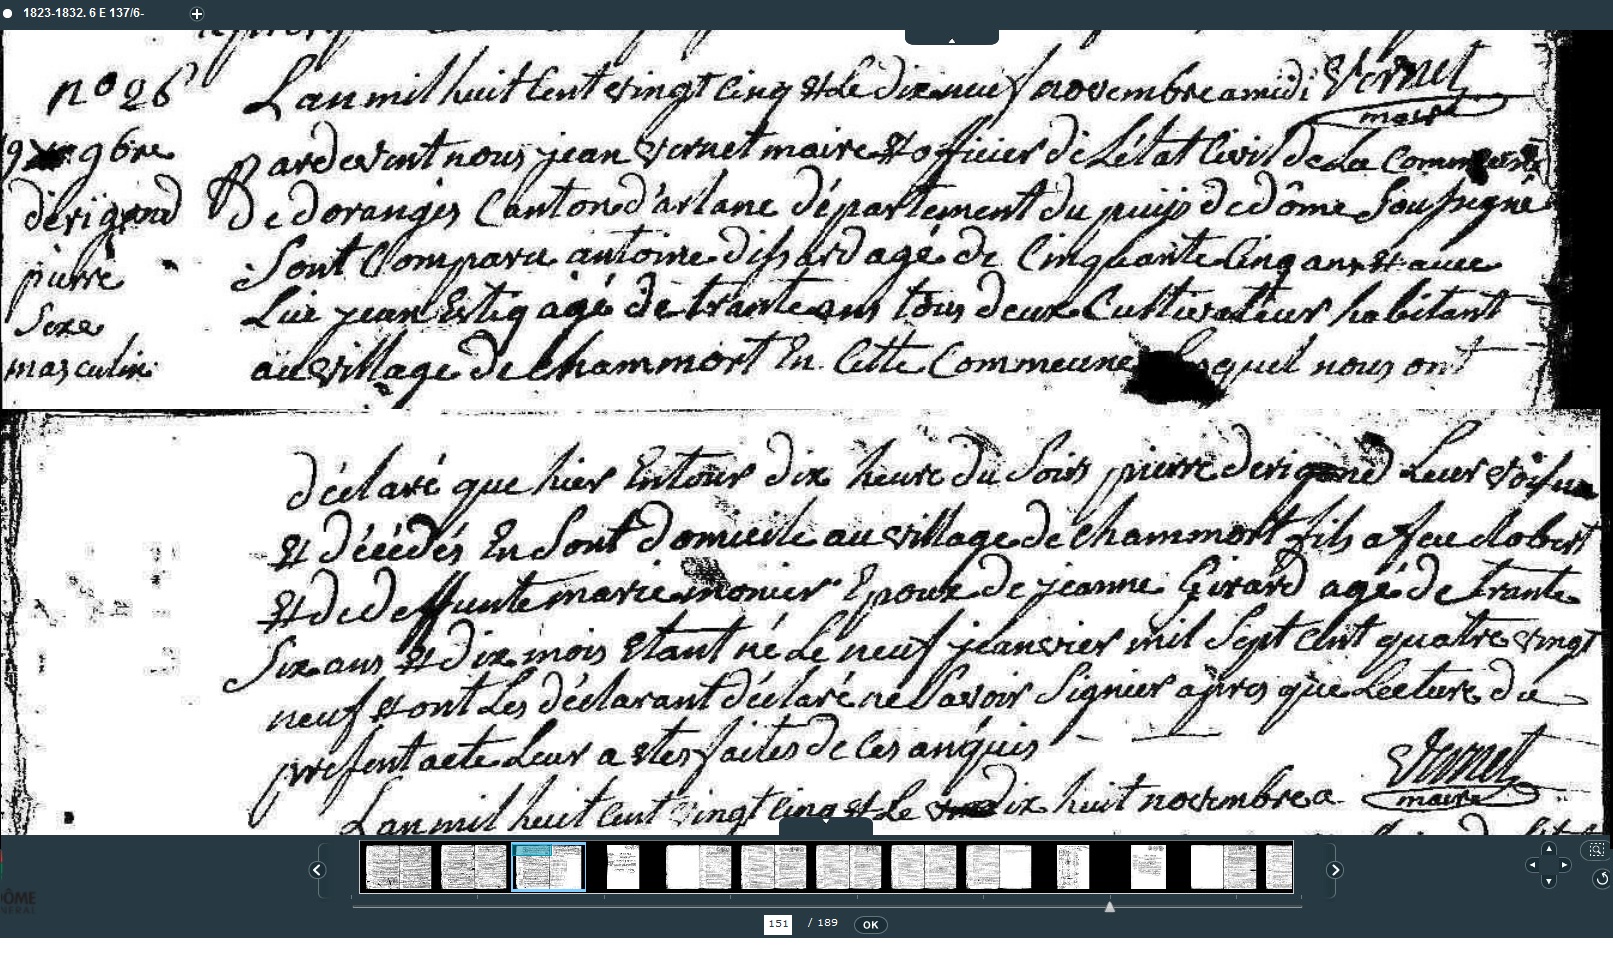 1823-1832. 6 E 137/6-
n° 26
19 9bre
derigond
pierre
Sexe
masculin
Lan mil huit Cent vingt Cinq et Le dixneuf novembre a midi
Vernet
maire
Pardevent nous jean vernet maire et officier de Létat Civil de La Commeune
De doranges Canton d'arlane département du puij de dôme Soussigné
Sont Comparu antoine dissard agé de Cinquante Cinq ans et avec
Lui jean Estiq agé de trante ans tous deux Cultivateur habitant
au village de chammort En Cette Commeune Lesquel nous ont
déclaré que hier Entour dix heure du Soirs pierre derigond Leur voisin
Et décédés En Sont domicile au village de chammort fils a feu Robert
Et de deffunte marie monier Epoux de jeanne Girard agé de trante
Six ans et dix mois Etant né Le neuf jeanvier mil Sept Cent quatre vingt
neuf et ont Les déclarant déclaré ne Savoir Signier apres que Lecture du
present acte Leur a etes faites de Ces anquis
Vernet
maire
Lan mil huit Cent vingt Cinq et Le dix huit novembre a
DÔME
151 / 189 OK